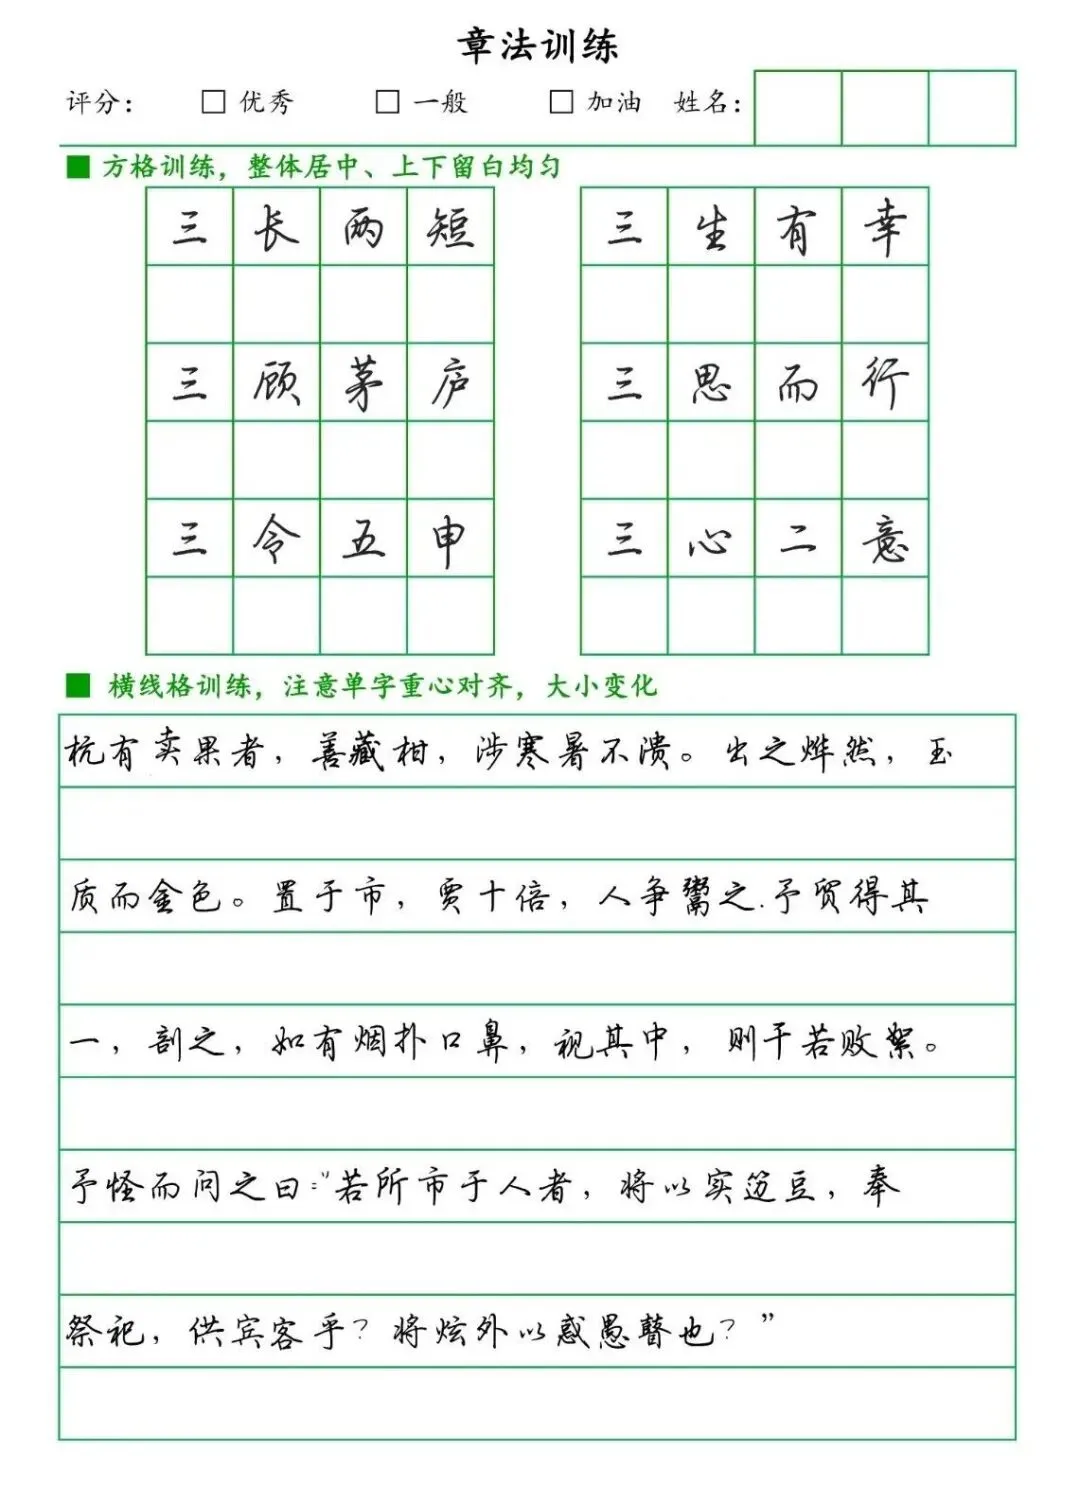 章法训练
评分： □ 优秀 □ 一般 □ 加油 姓名：
■ 方格训练，整体居中、上下留白均匀
三长两短 三生有幸
三顾茅庐 三思而行
三令五申 三心二意
■ 横线格训练，注意单字重心对齐，大小变化
杭有卖果者，善藏柑，涉寒暑不溃。出之烨然，玉
质而金色。置于市，贾十倍，人争鬻之.予贸得其
一，剖之，如有烟扑口鼻，视其中，则干若败絮。
予怪而问之曰：“若所市于人者，将以实笾豆，奉
祭祀，供宾客乎？将炫外以惑愚瞽也？”